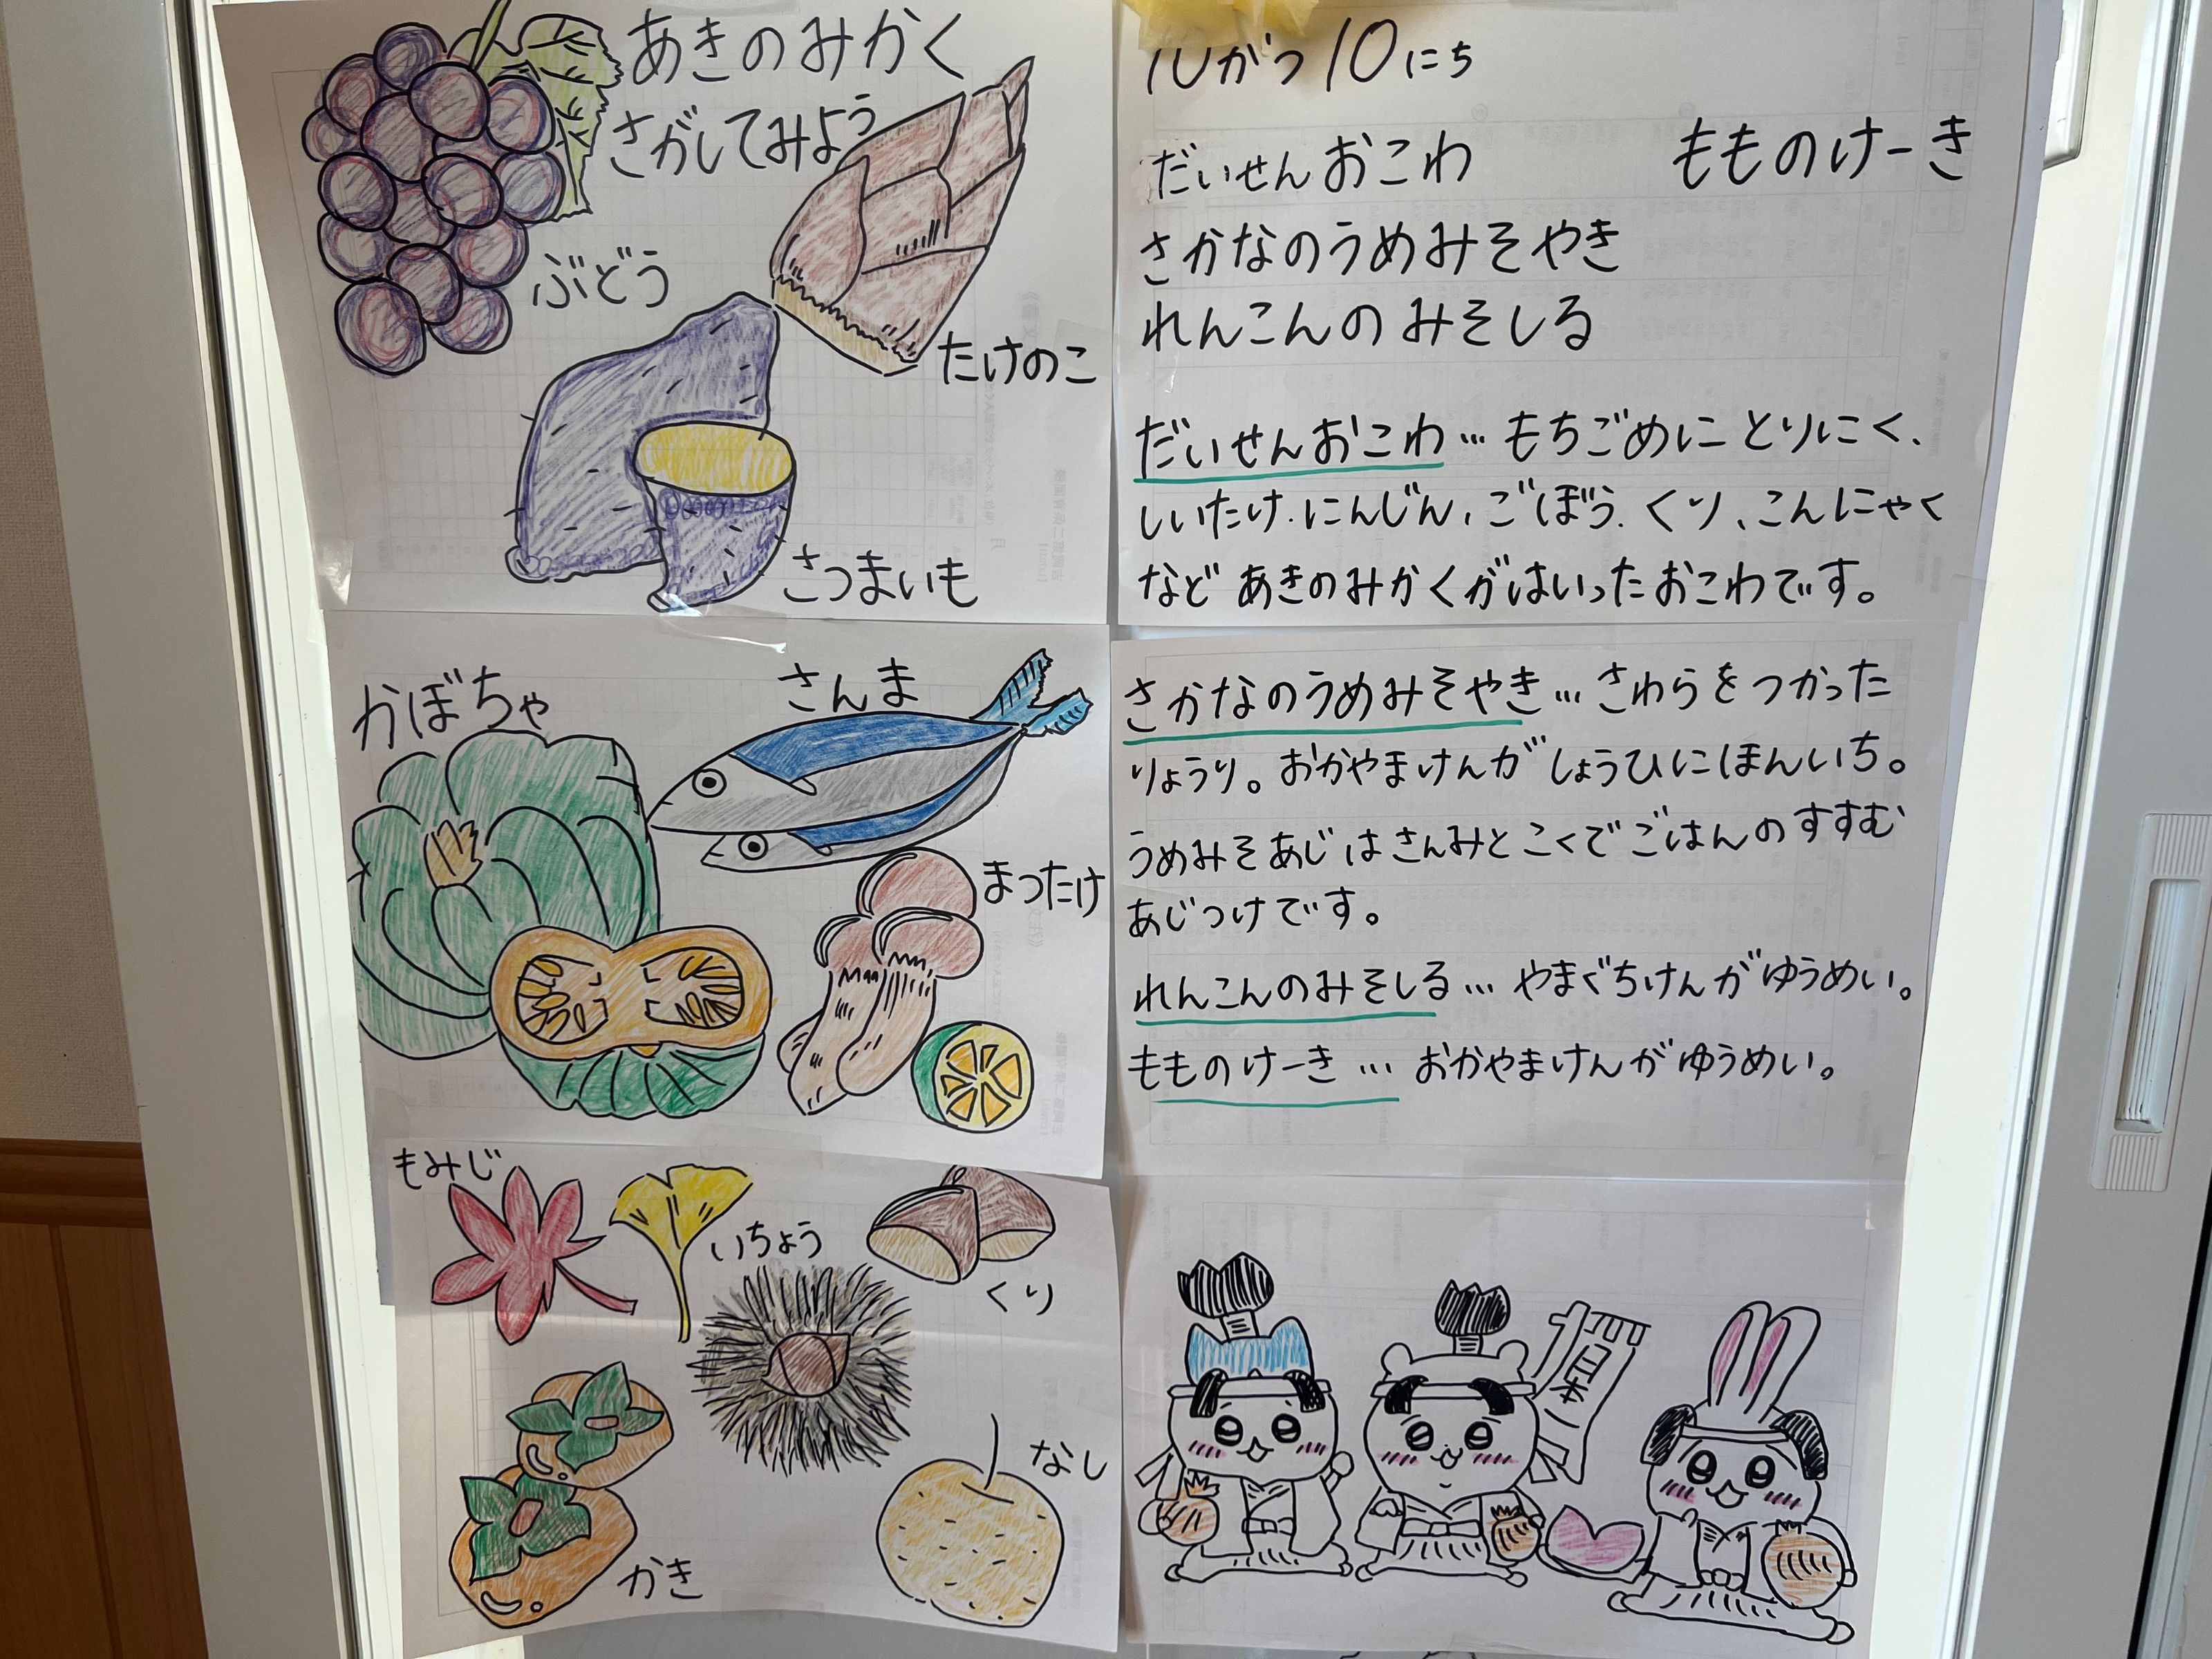 あきのみかく
さがしてみよう
ぶどう
たけのこ
さつまいも
かぼちゃ
さんま
まつたけ
もみじ
いちょう
くり
かき
なし
10がつ10にち
だいせんおこわ
もものけーき
さかなのうめみそやき
れんこんのみそしる
だいせんおこわ…もちごめにとりにく、
しいたけ、にんじん、ごぼう、くり、こんにゃく
などあきのみかくがはいったおこわです。
さかなのうめみそやき…さわらをつかった
りょうり。おかやまけんがしょうひにほんいち。
うめみそあじはさんみとこくでごはんのすすむ
あじつけです。
れんこんのみそしる…やまぐちけんがゆうめい。
もものけーき…おかやまけんがゆうめい。
日本一